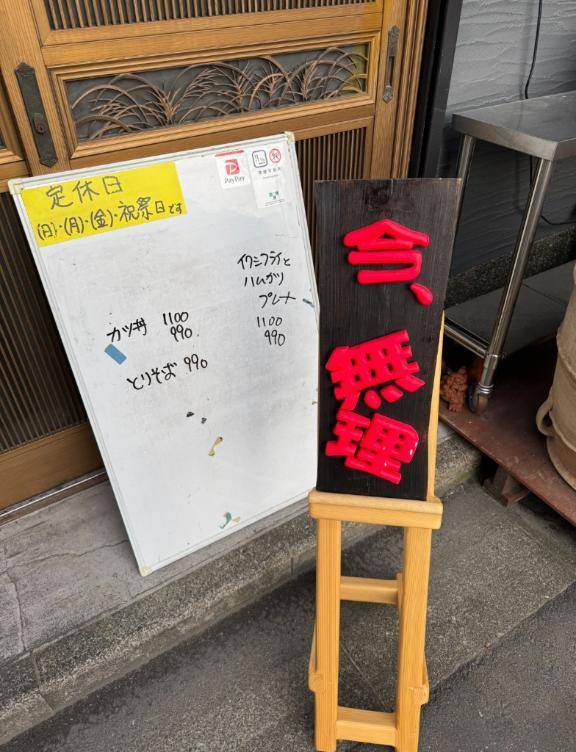 定休日
(日)・(月)・(金)・祝祭日です
PayPay
イワシフライと
ハムカツ
プレート
1100
990
カツ丼 1100
990
とりそば 990
今、
無
理